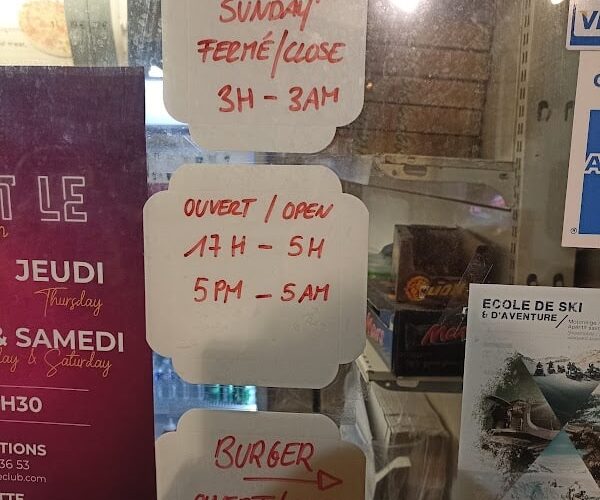 SUNDAY
FERMÉ/CLOSE
3H - 3AM
OUVERT / OPEN
17H - 5H
5PM - 5AM
BURGER
T LE
JEUDI
Thursday
& SAMEDI
& Saturday
H30
TIONS
36 53
eclub.com
ECOLE DE SKI
& D'AVENTURE